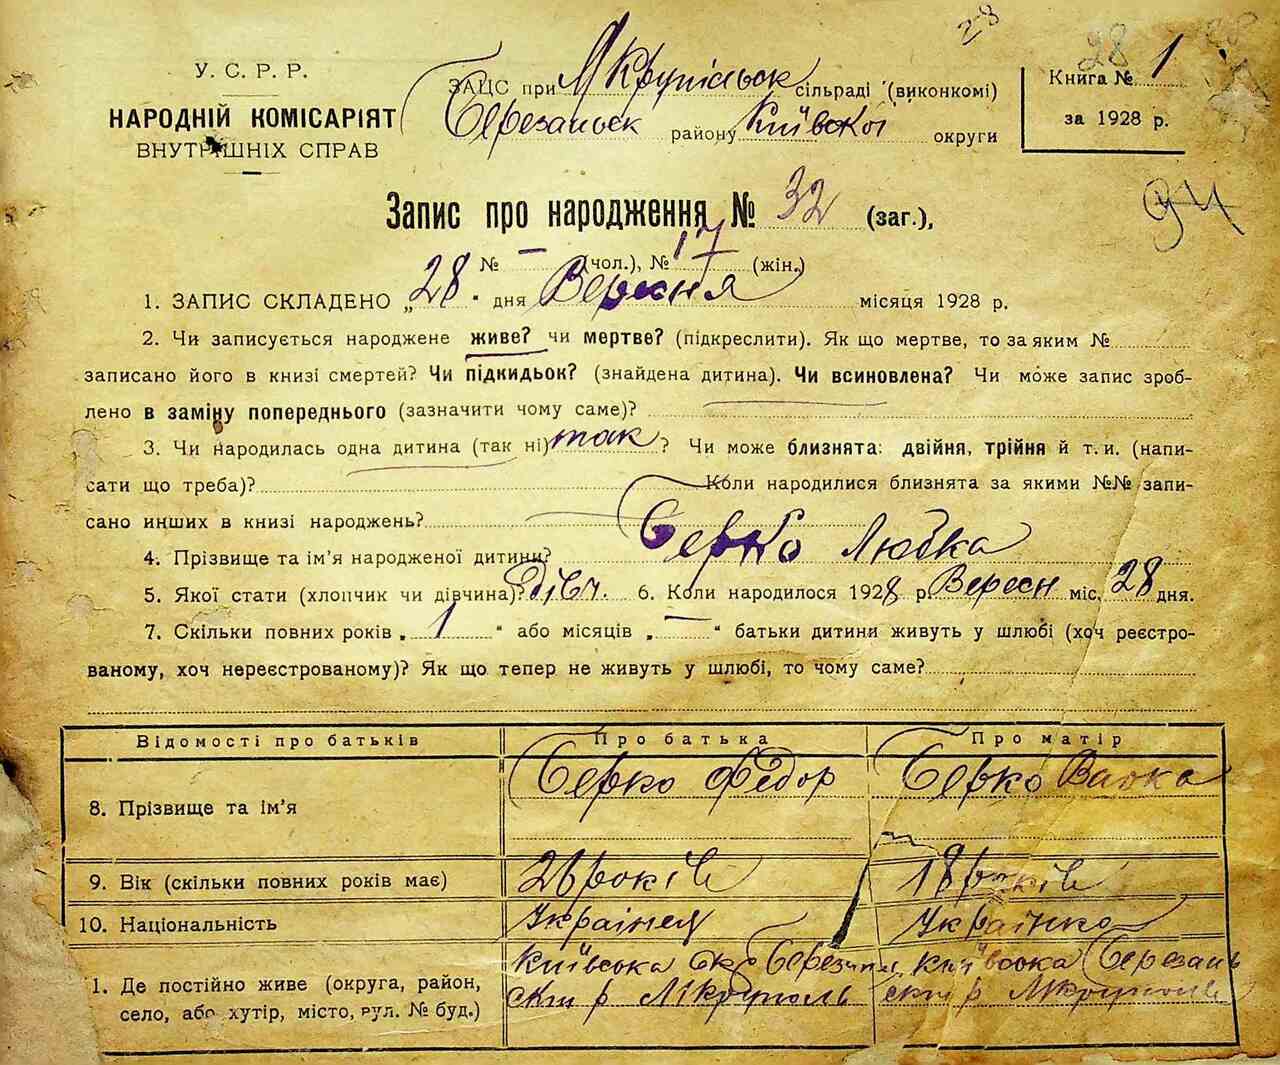 28
У. С. Р. Р.
НАРОДНІЙ КОМІСАРІЯТ
ВНУТРІШНІХ СПРАВ
ЗАЦС при М Крупільск сільраді (виконкомі)
Березанськ району Київської округи
28
Книга № 1
за 1928 р.
94
Запис про народження № 32 (заг.),
№ — (чол.), № 17 (жін.)
1. ЗАПИС СКЛАДЕНО „28“ дня Вересня місяця 1928 р.
2. Чи записується народжене живе? чи мертве? (підкреслити). Як що мертве, то за яким №
записано його в книзі смертей? Чи підкидьок? (знайдена дитина). Чи всиновлена? Чи може запис зроб-
лено в заміну попереднього (зазначити чому саме)?
3. Чи народилась одна дитина (так ні) так ? Чи може близнята: двійня, трійня й т. и. (напи-
сати що треба)? Коли народилися близнята за якими №№ запи-
сано инших в книзі народжень?
4. Прізвище та ім’я народженої дитини? Берко Любка
5. Якої стати (хлопчик чи дівчина)? дівч. 6. Коли народилося 1928 р. Вересн міс. 28 дня.
7. Скільки повних років „ 1 “ або місяців „ — “ батьки дитини живуть у шлюбі (хоч реєстро-
ваному, хоч нереєстрованому)? Як що тепер не живуть у шлюбі, то чому саме?
Відомості про батьків Про батька Про матір
8. Прізвище та ім’я Берко Федор Берко Варка
9. Вік (скільки повних років має) 26 років 18 років
10. Національність Украінец Украінка
1. Де постійно живе (округа, район, Київська окр Березан Київська Березань
село, або хутір, місто, вул. № буд.) ськ р МКрупіль ськ р МКрупіль